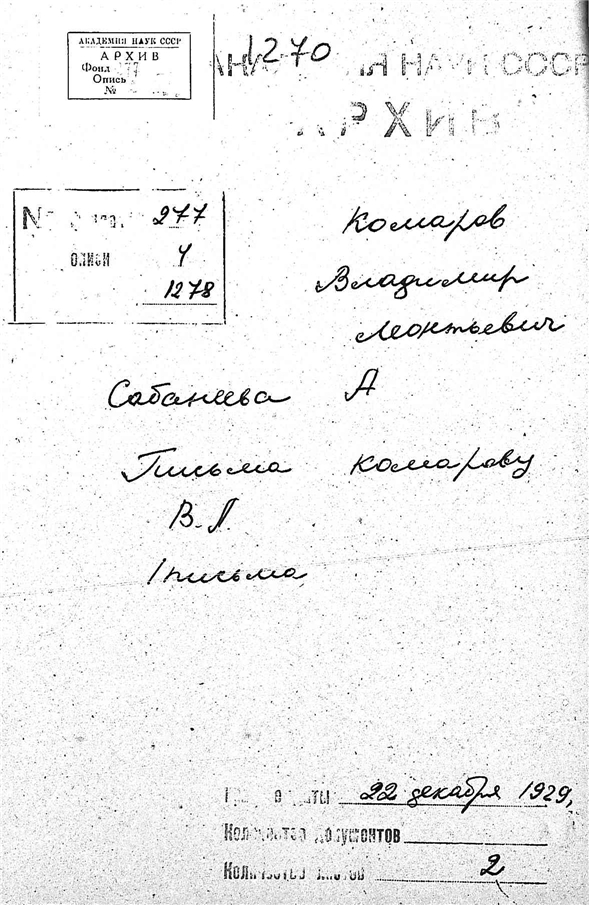 АКАДЕМИЯ НАУК СССР
АРХИВ
Фонд
Опись
№
1270
НАУК СССР
АРХИВ
№ 277
описи 4
1278
Комаров
Владимир
Леонтьевич
Сабанеева А
Письма комарову
В.Л.
1 письма
даты 22 декабря 1929,
Количество документов
Количество листов 2